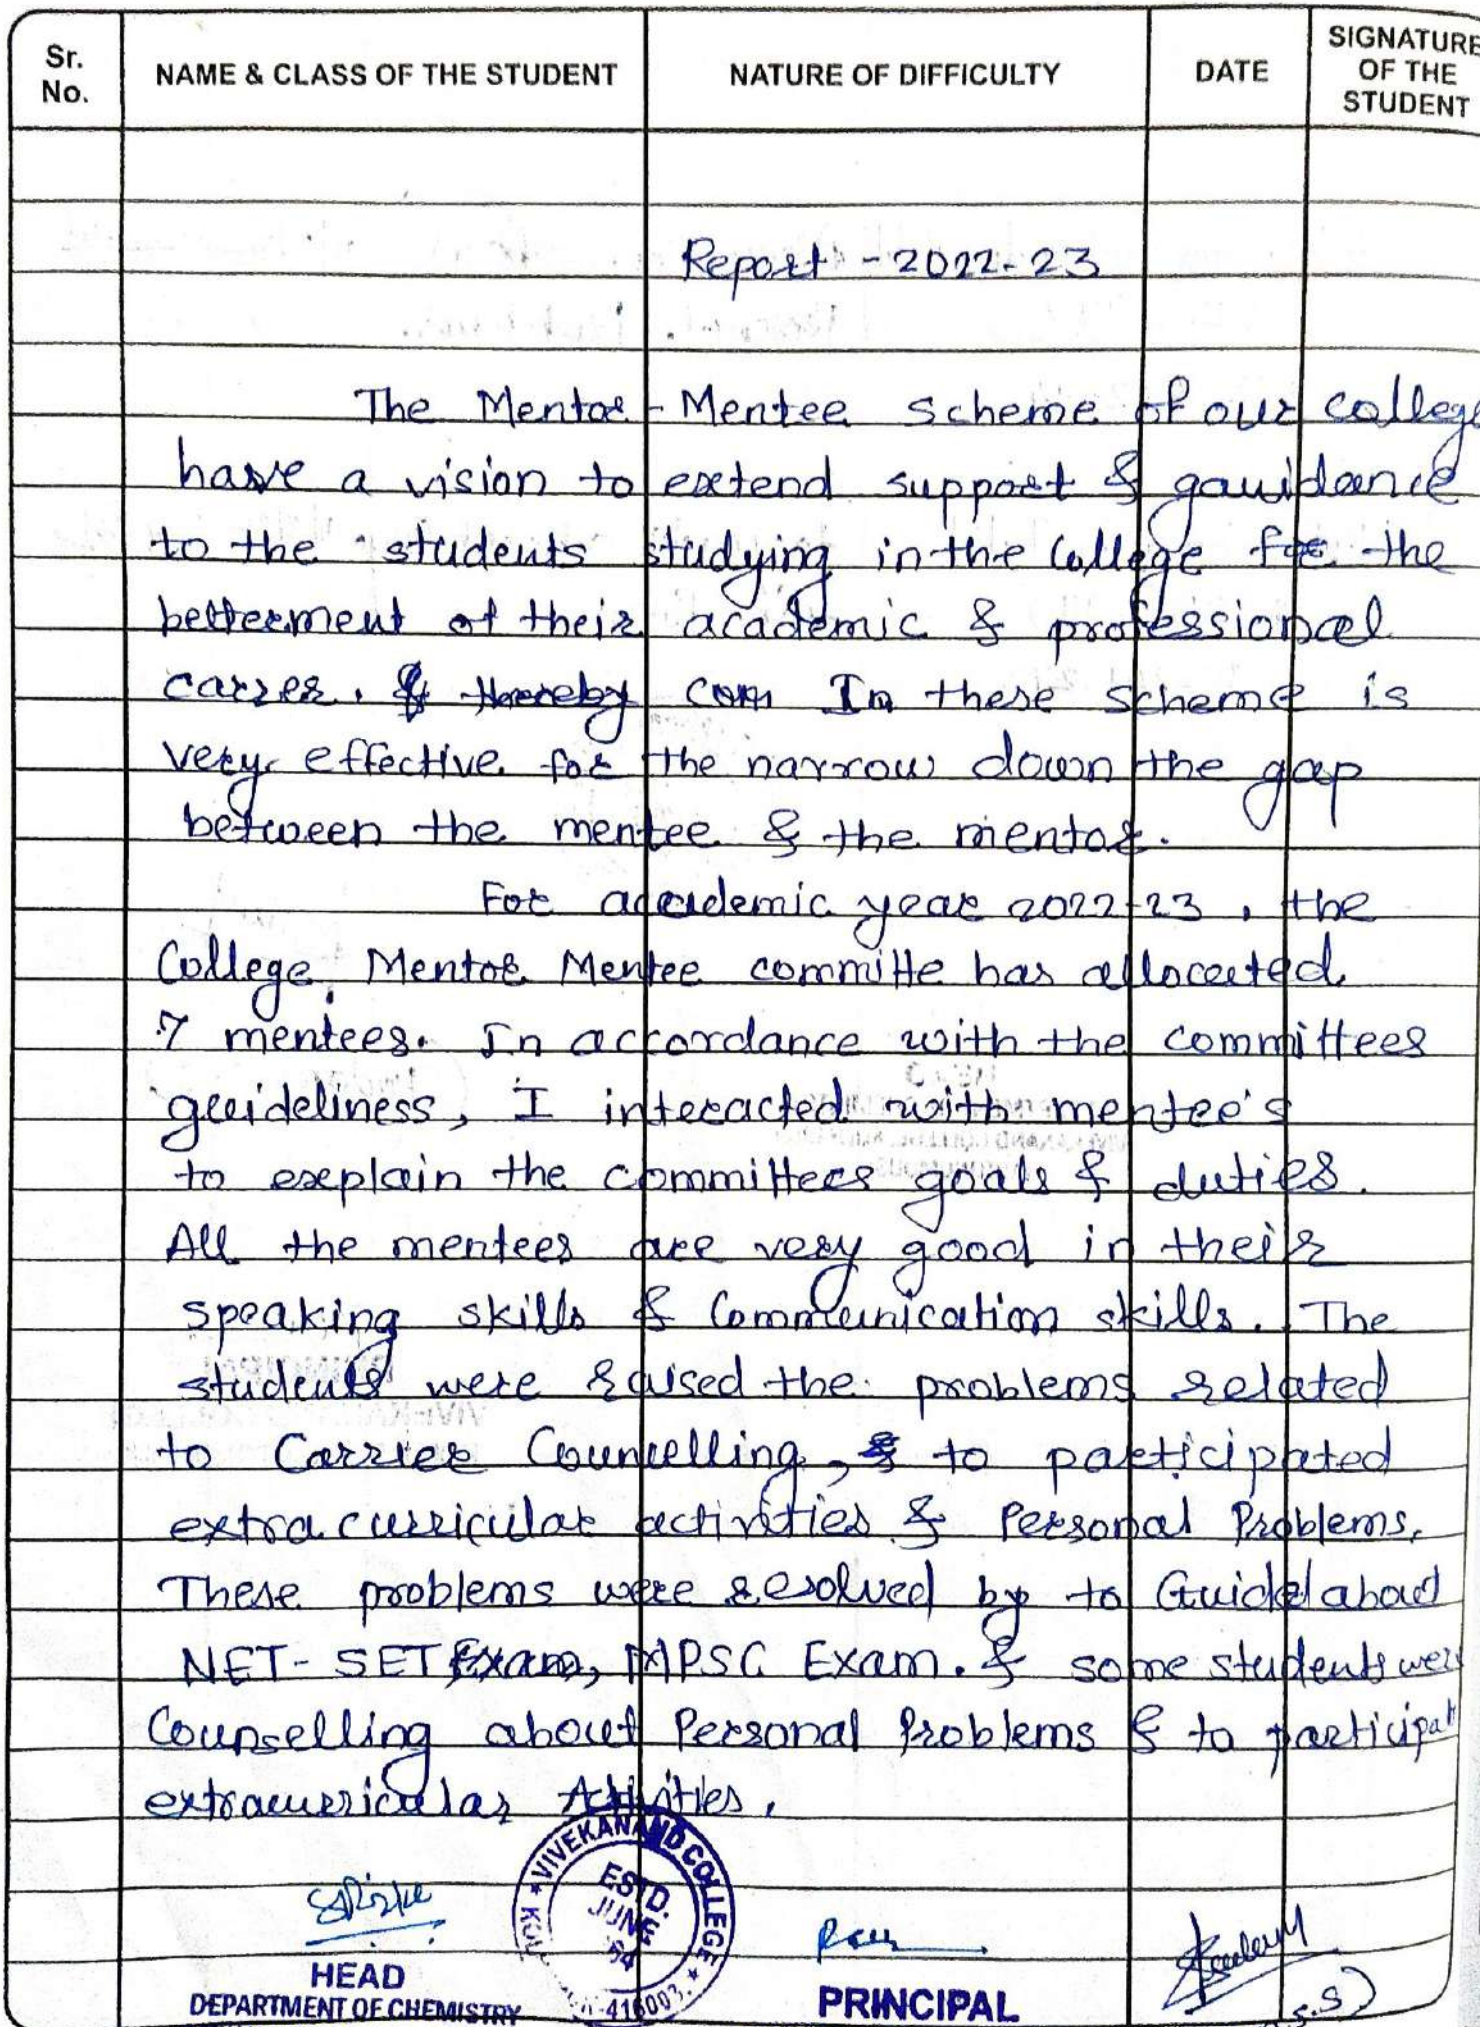 Sr. No.
NAME & CLASS OF THE STUDENT
NATURE OF DIFFICULTY
DATE
SIGNATURE OF THE STUDENT
Report - 2022-23
The Mentor-Mentee scheme of our college
have a vision to extend support & gauidance
to the students studying in the College for the
betterment of their academic & professional
carrer. & thereby com In these scheme is
very effective for the narrow down the gap
between the mentee & the mentor.
For academic year 2022-23, the
College Mentor Mentee committe has allocated
7 mentees. In accordance with the committees
guideliness, I interacted with mentee's
to explain the committees goals & duties.
All the mentees are very good in their
speaking skills & Communication skills. The
students were raised the problems related
to Carrier Councelling, & to participated
extracurricular activities & Personal Problems.
These problems were resolved by to Guide about
NET-SET Exam, MPSC Exam. & some students were
Counselling about Personal Problems & to participat
extracurricular Activities.
VIVEKANAND COLLEGE
ESTD.
JUNE
64
HEAD
DEPARTMENT OF CHEMISTRY
PRINCIPAL
S.S)